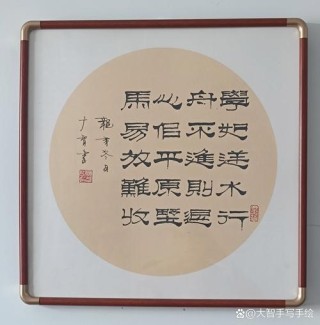 學如逆水行
舟不進則退
心佀平原埜
馬易放難收
龍年冬月
大智書
@大智手写手绘